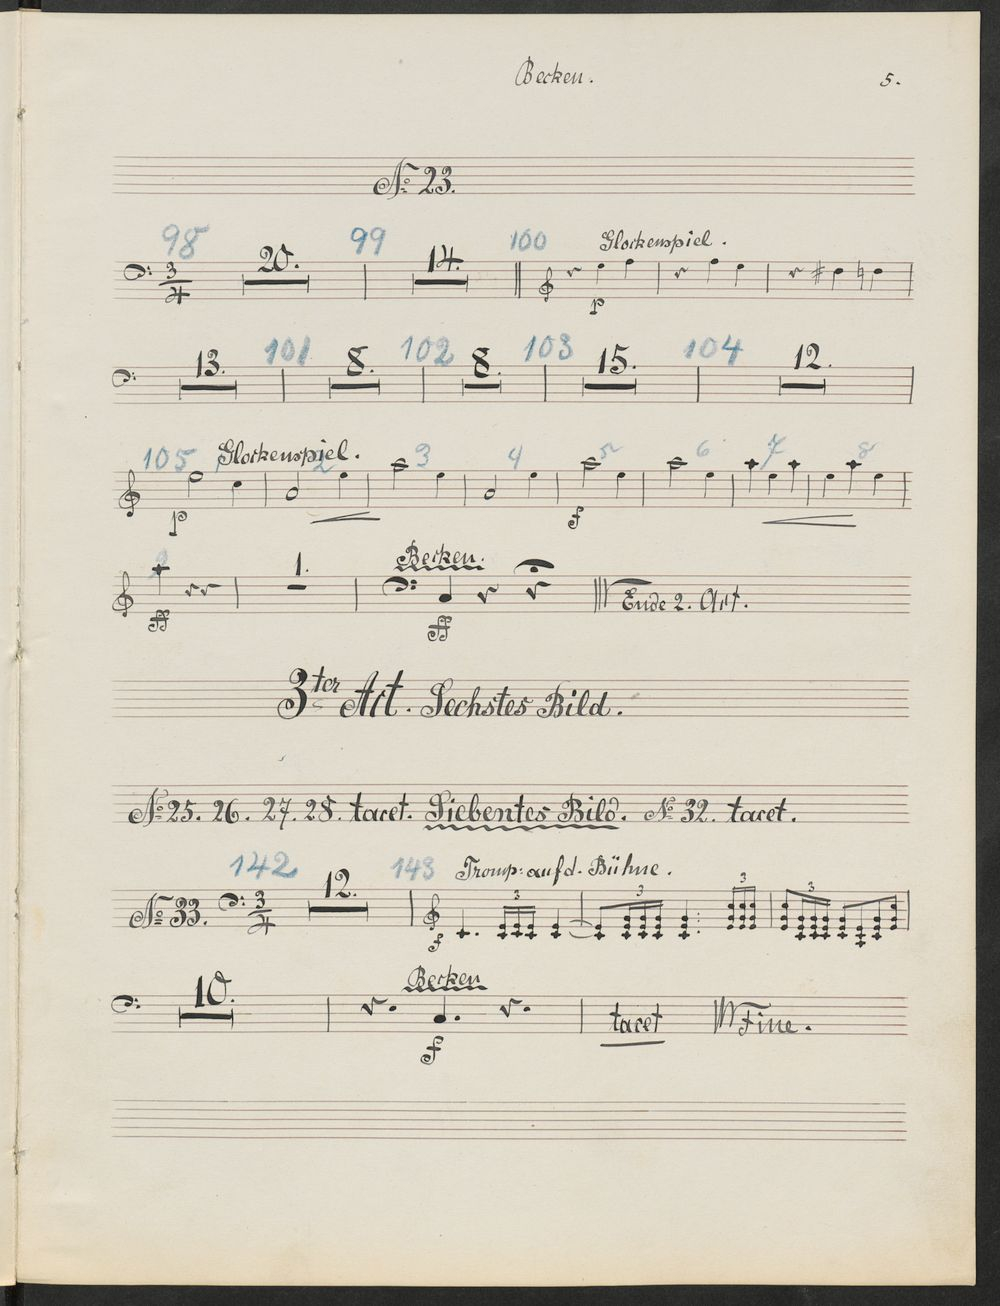 Becken. 5.
№ 23.
98 99 100 Glockenspiel.
3/4 20. 14.
p
101 102 103 104
13. 8. 8. 15. 12.
105 Glockenspiel. 2 3 4 5 6 7 8
p f
1. Becken.
ff ff Ende 2. Act.
3ter Act. Sechstes Bild.
№ 25. 26. 27. 28. tacet. Siebentes Bild. № 32. tacet.
142 143 Tromp: auf d. Bühne.
№ 33. 3/4 12. 3 3 3 3
f
10. Becken
tacet Fine.
f